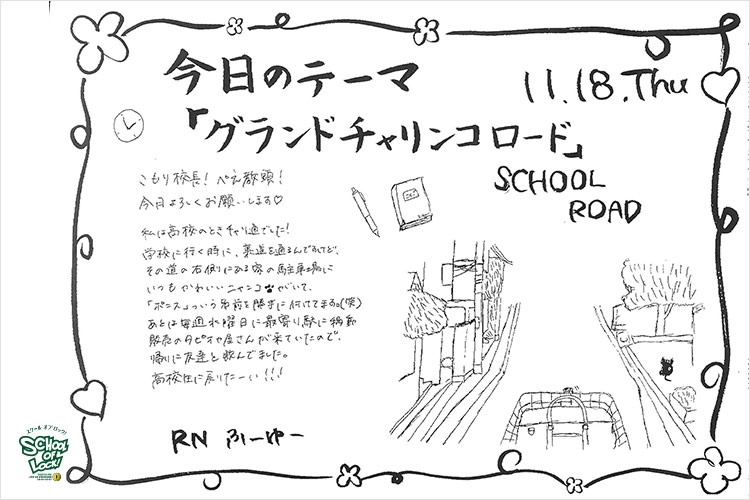 今日のテーマ
11.18.Thu
「グランドチャリンコロード」
SCHOOL
ROAD
こもり校長！ぺえ教頭！
今日よろしくお願いします♡
私は高校のときチャリ通でした！
学校に行く時に、裏道を通るんですけど、
その道の右側にある家の駐車場に
いつもかわいいニャンコがいて、
「ボニス」っていう名前を勝手に付けてます。(笑)
あとは毎週水曜日に最寄り駅に移動
販売のタピオカ屋さんが来ていたので、
帰りに友達と飲んでました。
高校生に戻りたーい！！！
RN ふーゆー
スクール オブ ロック！
SCHOOL
OF
LOCK!